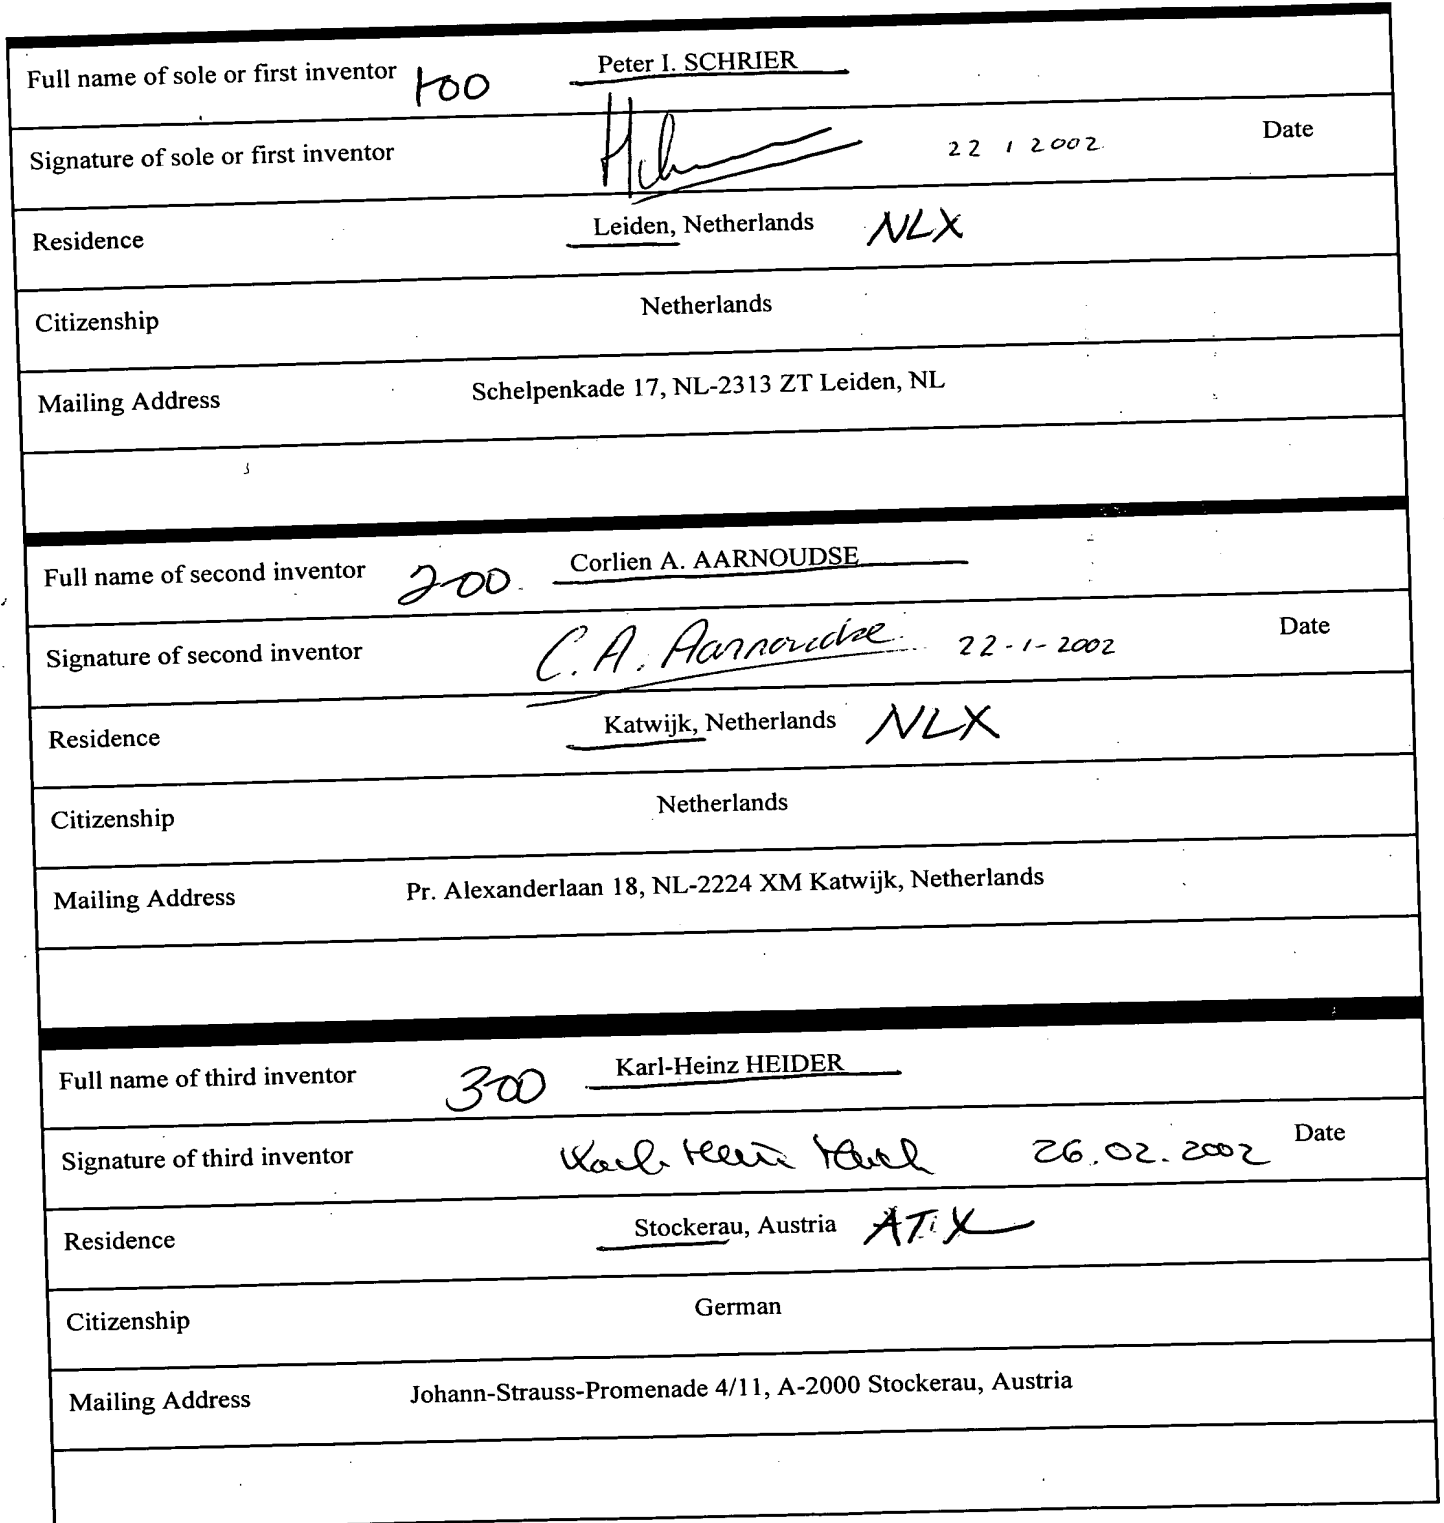 Full name of sole or first inventor 1-00 Peter I. SCHRIER
Signature of sole or first inventor 22 1 2002 Date
Residence Leiden, Netherlands NLX
Citizenship Netherlands
Mailing Address Schelpenkade 17, NL-2313 ZT Leiden, NL
Full name of second inventor 2-00 Corlien A. AARNOUDSE
Signature of second inventor C. A. Aarnoudse 22-1-2002 Date
Residence Katwijk, Netherlands NLX
Citizenship Netherlands
Mailing Address Pr. Alexanderlaan 18, NL-2224 XM Katwijk, Netherlands
Full name of third inventor 3-00 Karl-Heinz HEIDER
Signature of third inventor 26.02.2002 Date
Residence Stockerau, Austria ATX
Citizenship German
Mailing Address Johann-Strauss-Promenade 4/11, A-2000 Stockerau, Austria